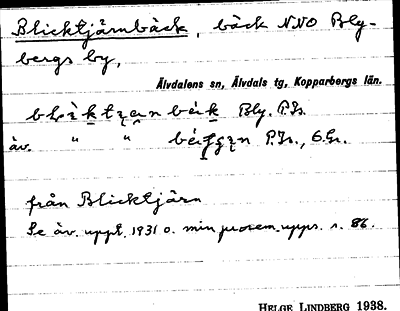 Blicktjärnbäck, bäck NNO Bly-
bergs by,
Älvdalens sn, Älvdals tg, Kopparbergs län.
Bly. P.Ir.
äv. " " P.Ir., G.Gr.
från Blicktjärn
Se äv. uppt. 1931 o. min prosem.upps. s. 86.
HELGE LINDBERG 1938.